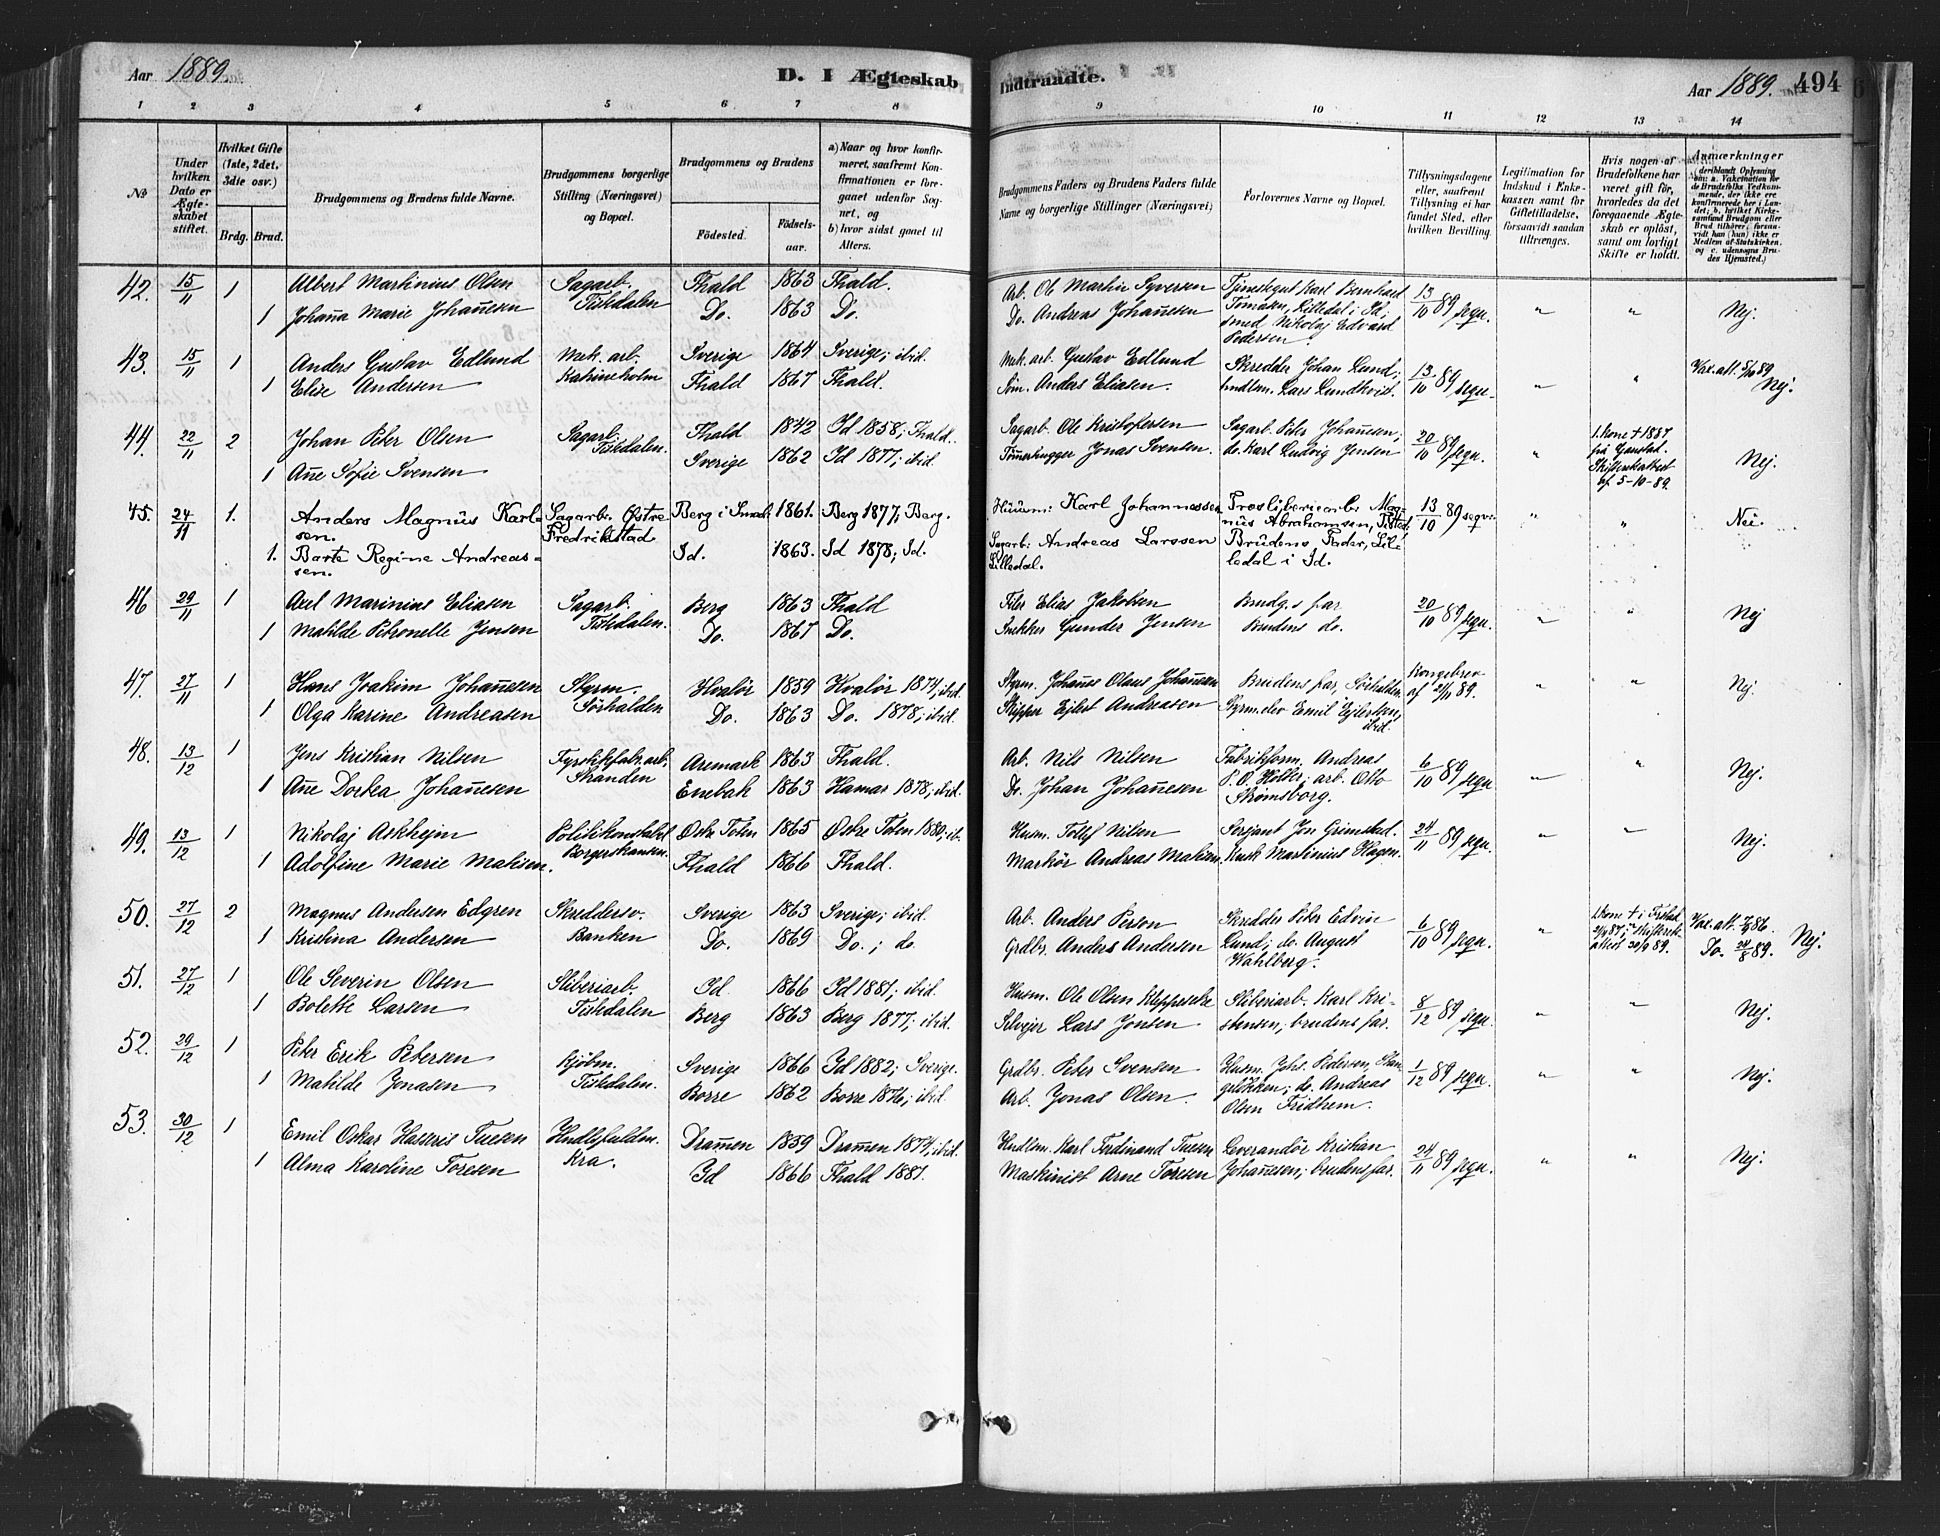 Aar 1889.
D. I Ægteskab
Indtraadte.
Aar 1889. 494
1 2 3 4 5 6 7 8 9 10 11 12 13 14
No
Under hvilken Dato er Ægteskabet stiftet.
Hvilket Gifte (1ste, 2det, 3die osv.)
Brdg. Brud.
Brudgommens og Brudens fulde Navne.
Brudgommens borgerlige Stilling (Næringsvei) og Bopæl.
Brudgommens og Brudens
Fødested.
Fødselsaar.
a) Naar og hvor konfirmeret, saafremt Konfirmationen er foregaaet udenfor Sognet, og
b) hvor sidst gaaet til Alters.
Brudgommens Faders og Brudens Faders fulde Navne og borgerlige Stillinger (Næringsvei)
Forlovernes Navne og Bopæl.
Tillysningsdagene eller, saafremt Tillysning ei har fundet Sted, efter hvilken Bevilling.
Legitimation for Indskud i Enkekassen samt for Giftetilladelse, forsaavidt saadan tiltrænges.
Hvis nogen af Brudefolkene har været gift før, hvorledes da det foregaaende Ægteskab er opløst, samt om lovligt Skifte er holdt.
Anmærkninger (deriblandt Oplysning om: a. Vakcination for de Brudefolks Vedkommende, der ikke ere konfirmerede her i Landet; b. hvilket Kirkesamfund Brudgom eller Brud tilhører, forsaavidt han (hun) ikke er Medlem af Statskirken, og c. udensogns Brudes Hjemsted.)
42. 15/11 1 Albert Martinius Olsen Sagarb. Fhald 1863 Fhald. Arb. Ole Martin Syversen Tjenestegut Karl Bernhard 13/10 89 sequ. " " Nej.
1 Johanna Marie Johannesen Tistedalen Do. 1863 Do. Do. Andreas Johannesen Tomasen, Lilledal i Id;
smed Nikolaj Edvard
Pedersen
43. 15/11 1 Anders Gustav Edlund Mek. arb. Sverige 1864 Sverige; ibid. Mek. arb. Gustav Edlund Skredder Johan Lund; 13/10 89 sequ. " " Vax. att. 5/10 89
1 Elise Andersen Katrineholm Fhald 1867 Fhald. Søm. Anders Eliasen. hndlsm. Lars Lundkvist. Nej.
44. 22/11 2 Johan Peter Olsen Sagarb. Fhald 1842 Id 1858; Fhald. Sagarb. Ole Kristofersen Sagarb. Peter Johannesen; 20/10 89 sequ. " 1. kone † 1887
1 Ane Sofie Svensen Tistedalen. Sverige 1862 Id 1877; ibid. Tømmerhugger Jonas Svensen. do. Karl Ludvig Jensen på Gjøustad. Nej.
Skifteretsattest
af 5-10-89.
45. 24/11 1. Anders Magnus Karl- Sagarb. Østre Berg i Smaal. 1861. Berg 1877; Berg. Husm. Karl Johannessen Træsliberiarb. Mag- 13/10 89 sequ. " " Nei.
sen. Fredrikstad nus Abrahamsen, Tisted.
1. Barte Regine Andreas- Id. 1863. Id 1878; Id. Sagarb: Andreas Larssen Brudens Fader, Lil-
sen. Lilledal. ledal i Id.
46 29/11 1 Axel Marinius Eliasen Sagarb. Berg 1863 Fhald Filer Elias Jakobsen Brudg.s far 20/10 89 sequ. " " Nej
1 Matilde Petronelle Jensen Tistedalen. Do. 1867 Do. Snekker Gunder Jensen Brudens do.
47. 27/11 1 Hans Joakim Johannesen Styrm. Hvalør 1859 Hvalør 1874; ibid. Styrm. Johannes Olaus Johannesen Brudens far, Sørhalden Kongebrev " " Nej.
1 Olga Karine Andreasen Sørhalden Do. 1863 Do. 1878; ibid. Skipper Ejlert Andreasen Styrm.elev Emil Ejlertsen, af 21/11 89.
ibid.
48. 13/12 1 Jens Kristian Nilsen Fyrstikfabk.arb. Aremark 1863 Fhald. Arb. Nils Nilsen Fabrikform. Andreas 6/10 89 sequ. " " Nej.
1 Ane Dortea Johannesen Stranden Enebak 1863 Hamar 1878; ibid. Do. Johan Johannesen P. O. Holter; arb. Otto
Strømsborg.
49. 13/12 1 Nikolaj Askhejm Politikonstabel Østre Toten 1865 Østre Toten 1880; ib. Husm. Tollef Nilsen Sersjant Jon Grimstad. 24/11 89 sequ. " " Nej.
1 Adolfine Marie Madsen. Borgerskansen. Fhald 1866 Fhald. Markør Andreas Madsen. Kusk Martinius Hagen.
50. 27/12 2 Magnus Andersen Edgren Skreddersv. Sverige 1863 Sverige; ibid. Arb. Anders Person Skredder Peter Edvin 6/10 89 sequ. " 1. kone † i Frstad Vax. att. 86.
1 Kristina Andersen Banken Do. 1869 Do.; do. Grdbr. Anders Andersen Lund; do. August 87; Skifteretsattest 30/9 89. Do. 24/8 89. Nej.
Wahlberg.
51. 27/12 1 Ole Severin Olsen Sliberiarb. Id 1866 Id 1881; ibid. Husm. Ole Olsen Sliberiarb. Karl Kri- 8/12 89 sequ. " " Nej.
1 Bolette Larsen Tistedalen Berg 1863 Berg 1877; ibid. Selvejer Lars Jonsen stensen; brudens far.
52. 29/12 1 Peter Erik Petersen Kjøbm. Sverige 1866 Id 1882; Sverige. Grdbr. Peter Svensen Husm. Johs. Pedersen, Stan- 1/12 89 sequ. " " Nej.
1 Matilde Jonasen Tistedalen. Borre 1862 Borre 1876; ibid. Arb. Jonas Olsen. geløkken; do. Andreas
Olsen Fridhem.
53. 30/12 1 Emil Oskar Tuesen Hndlsfuldm. Drammen 1859 Drammen 1874; ibid. Hndlsm. Karl Ferdinand Tuesen Leverandør Kristian 24/11 89 sequ. " " Nej.
1 Alma Karoline Toresen Kra. Id 1866 Fhald 1881. Maskinist Arne Toresen Johannesen; brudens far.